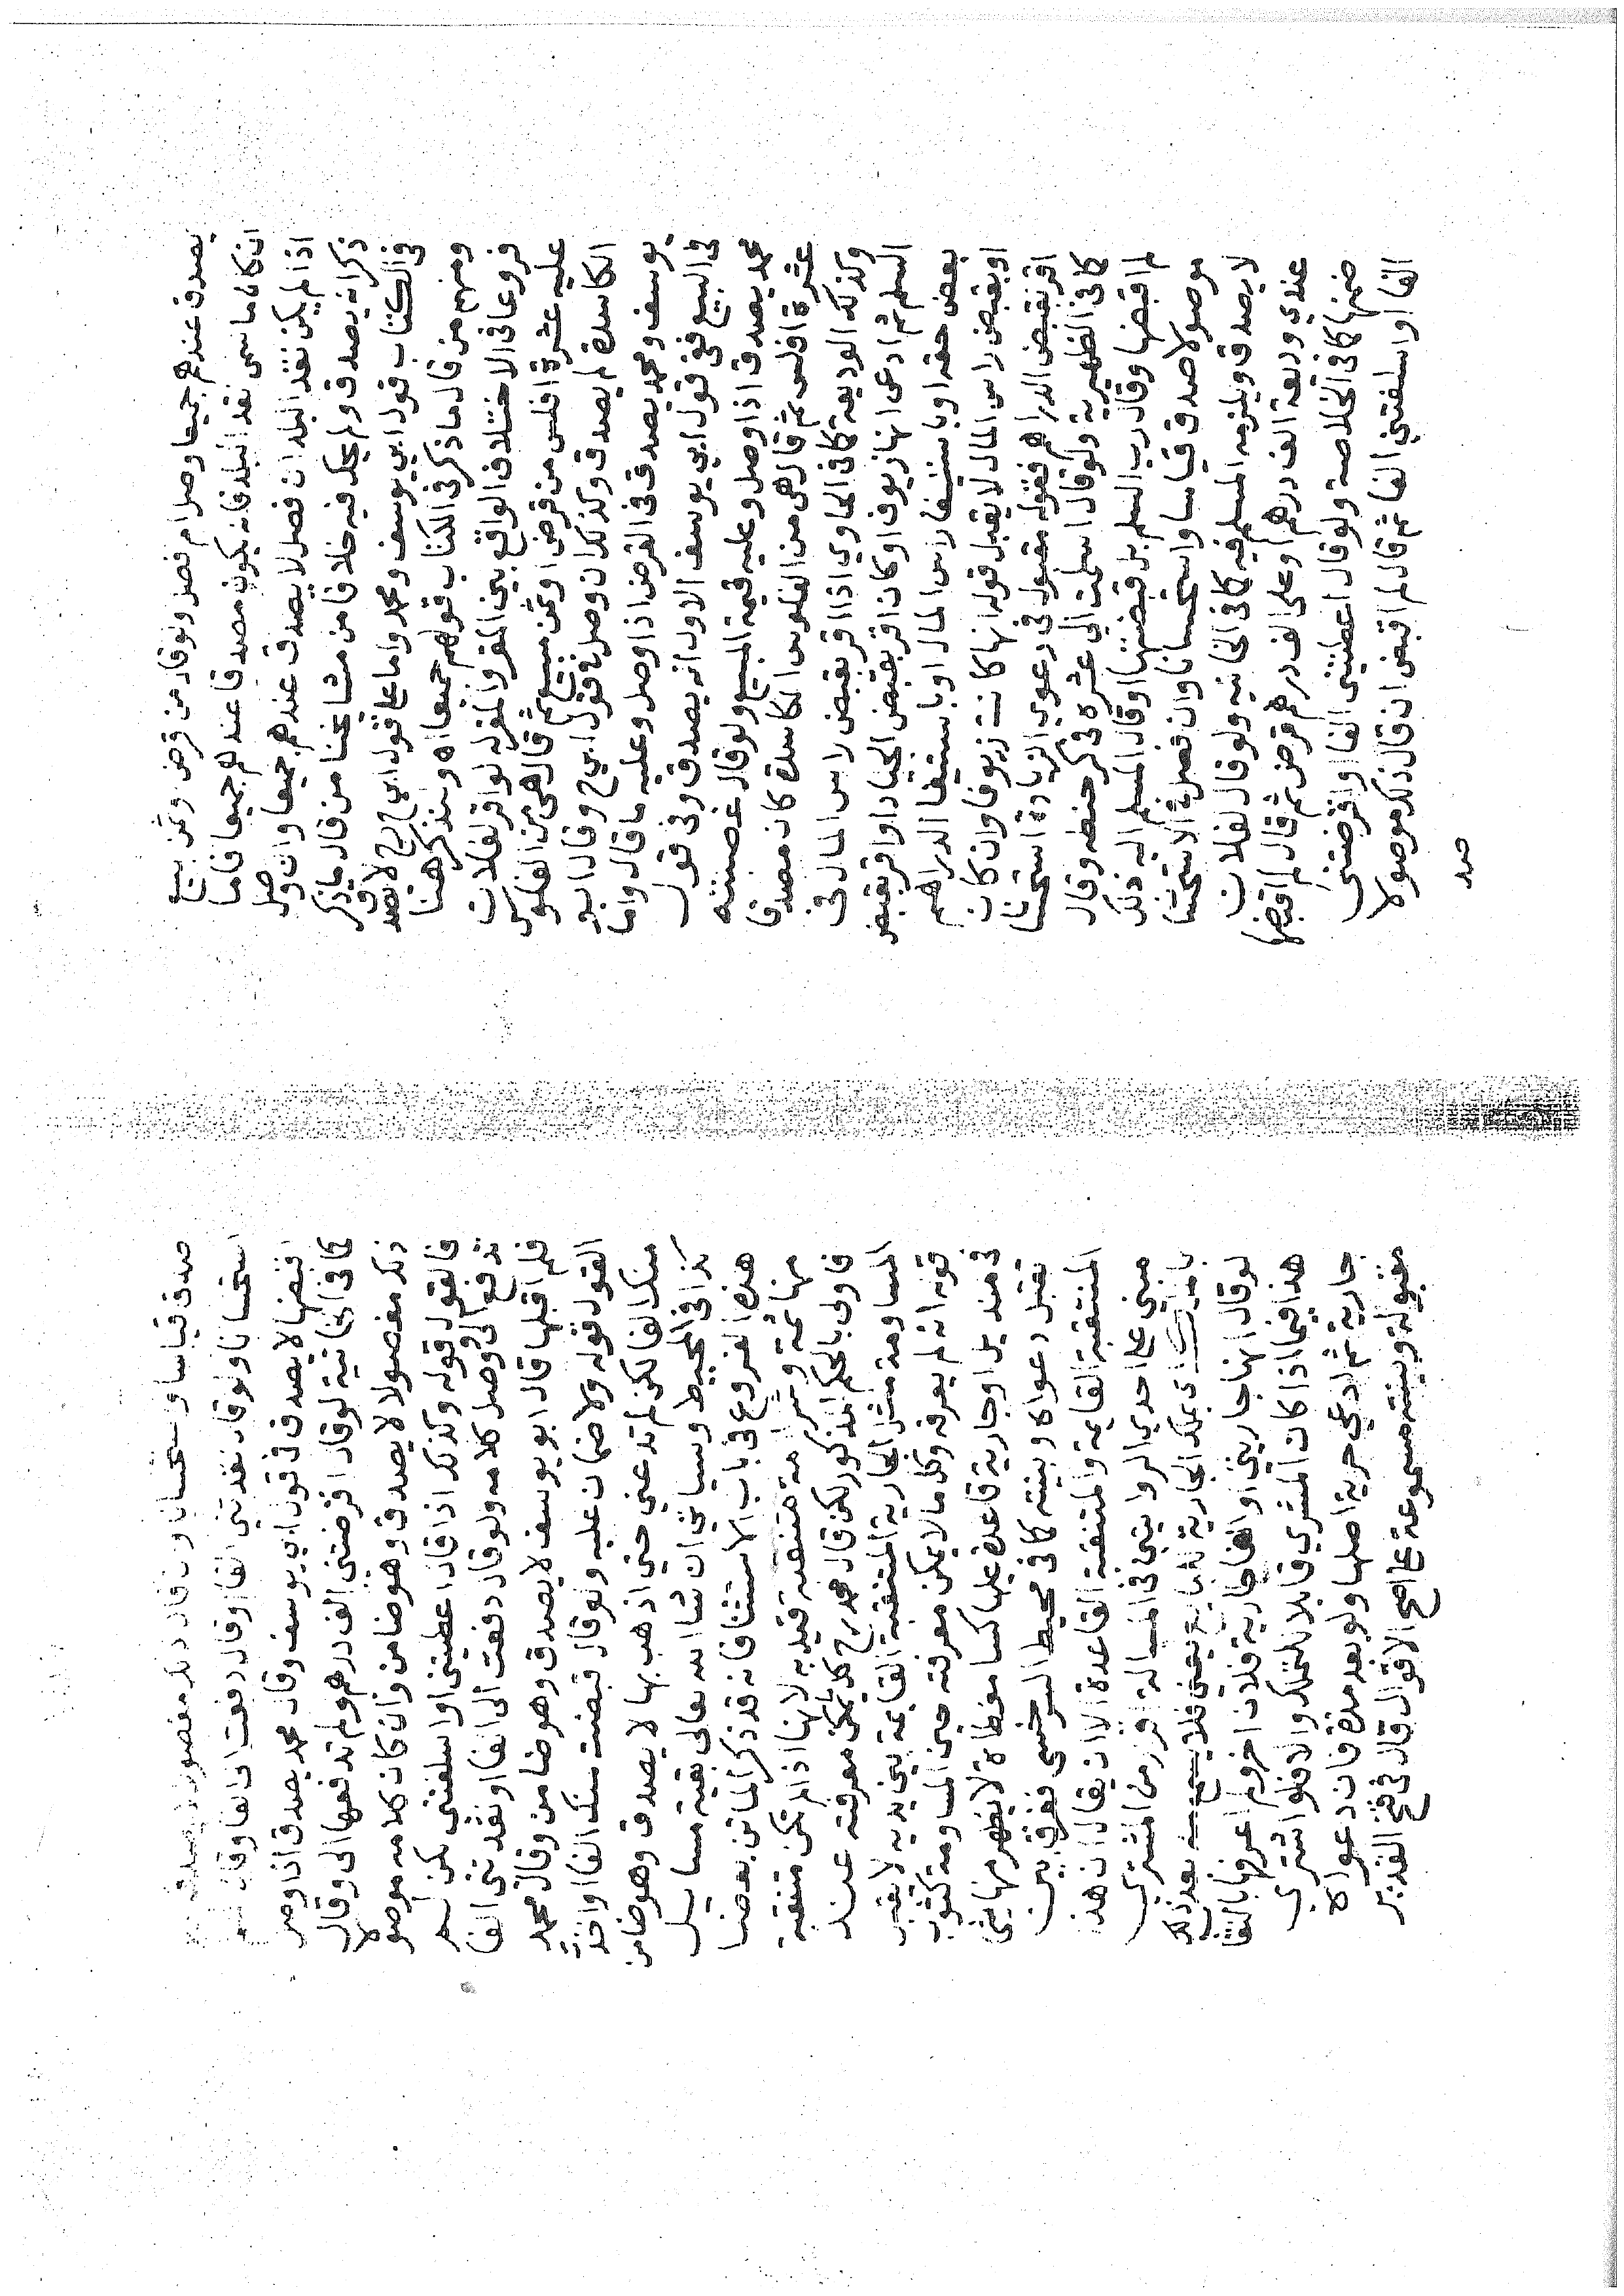 يصدق عندهم جميعا وصل ام فصل ولو قال من قرض وثمن بيع
ان كان ما سمى نقد البلد فانه يكون مصدقا عندهم جميعا فاما
اذا لم يكن نقد البلد ان فصل لا يصدق عندهم جميعا وان وصل
ذكر انه يصدق ولم يحك فيه خلافا من مشايخنا من قال ما ذكر
في الكتاب قول ابي يوسف ومحمد واما على قول ابي ح رح لا يصدق
ومنهم من قال ما ذكر في الكتاب قولهم جميعا اه وسنذكر هنا
فروعا في الاختلاف الواقع بين المقر والمقر له لو اقر لفلان
عليه عشرة افلس من قرض او ثمن مبيع ثم قال هي من الفلوس
الكاسدة لم يصدق وكذلك ان وصل في قول ابي ح وقال ابو
يوسف ومحمد يصدق في القرض اذا وصل وعليه ما قال واما
في البيع ففي قول ابي يوسف الاول انه يصدق وفي قول
محمد يصدق اذا وصل وعليه قيمة المبيع ولو قال غصبته
عشرة افلس ثم قال هي من الفلوس الكاسدة كان مصدقا
وكذلك الوديعة كما في الحاوي اذا اقر بقبض راس المال في
السلم ثم ادعى انها زيوف او كان اقر بقبض الجياد او اقر بقبض
بعض حقه او باستيفا راس المال او باستيفا الدراهم
او بقبض راس المال لا يقبل قوله انها كانت زيوفا وان كان
اقر بقبض الدراهم فقوله مقبول في دعوى الزيادة استحسانا
كما في الظهيرية ولو قال اسلمت الي عشره في كر حنطه وقال
لم اقبضها وقال رب السلم بل قبضتها او قال المسلم اليه ذلك
موصولا صدق قياسا واستحسانا وان فصل في الاستحسان
لا يصدق ويلزمه المسلم فيه كما في الخانيه ولو قال لفلان
عندي وديعة الف درهم او على الف درهم قرض ثم قال لم اقبضها
ضمنها كما في الخلاصة ولو قال اعطيتني الفا او اقرضتني
الفا او اسلفتني الفا ثم قال لم اقبض ان قال ذلك موصولا
صدق
صدق قياسا واستحسانا وان قال ذلك مفصولا لا يصدق
استحسانا ولو قال نقدتني الفا او قال دفعت الى الفا وقال لم
اقبضها لا يصدق في قول ابي يوسف وقال محمد يصدق اذا وصل
كما في الخانية لو قال اقرضتني الف درهم ولم تدفعها الى وقال
ذلك مفصولا لا يصدق وهو ضامن وان كان كلامه موصولا
فالقول قوله وكذلك اذا قال اعطيتني او اسلفتني لكن لم
تدفع الى ووصل كلامه ولو قال دفعت الى الفا او نقدتني الفا
فلم اقبلها قال ابو يوسف لا يصدق وهو ضامن وقال محمد
القول قوله ولا ضمان عليه ولو قال قبضت منك الفا او اخذت
منك الفا لكن لم تدعني حتى اذهب بها لا يصدق وهو ضامن
كذا في المحيط وسياتي ان شا الله تعالى بقية مسايل
هذه الفروع في باب الاستثنا فانه قد ذكر الماتن بعضا
منها ثمة وشرا امة متنقبة قيد به لانها اذا لم تكن متنقبه
فاولى بالحكم المذكور لكن قال محمد رح كل ما يمكن معرفته عند
المساومة مثل الجارية المتنقبة القايمة بين يديه لا يقبل
قوله انه لم يعرفه وكل ما لا يمكن معرفته حتى المساومة كثوب
في منديل او جارية قاعدة عليها كسا مغطاة لا يظهر منها شي
تقبل دعواه وبينته كما في محيط السرخسي ففرق بين
المتنقبة القايمة والمتنقبة القاعدة الا ان يقال ان هذا
مبني على احدى الروايتين في المسالة اقر من المشتري
بالملك اى بملك الجارية للبايع يعني فلا يسمع منه بعد ذلك
لو قال انها جاريتي او انها جارية فلان اخر ولم اعرفها بالنقاب
هذا فيما اذا كان المشري قابلا للتملك والا فلو اشترى
جارية ثم ادعى حرية اصلها ولو بعد مدة فان دعواه
مقبولة وبينته مسموعة على اصح الاقوال قال في فتح القدير